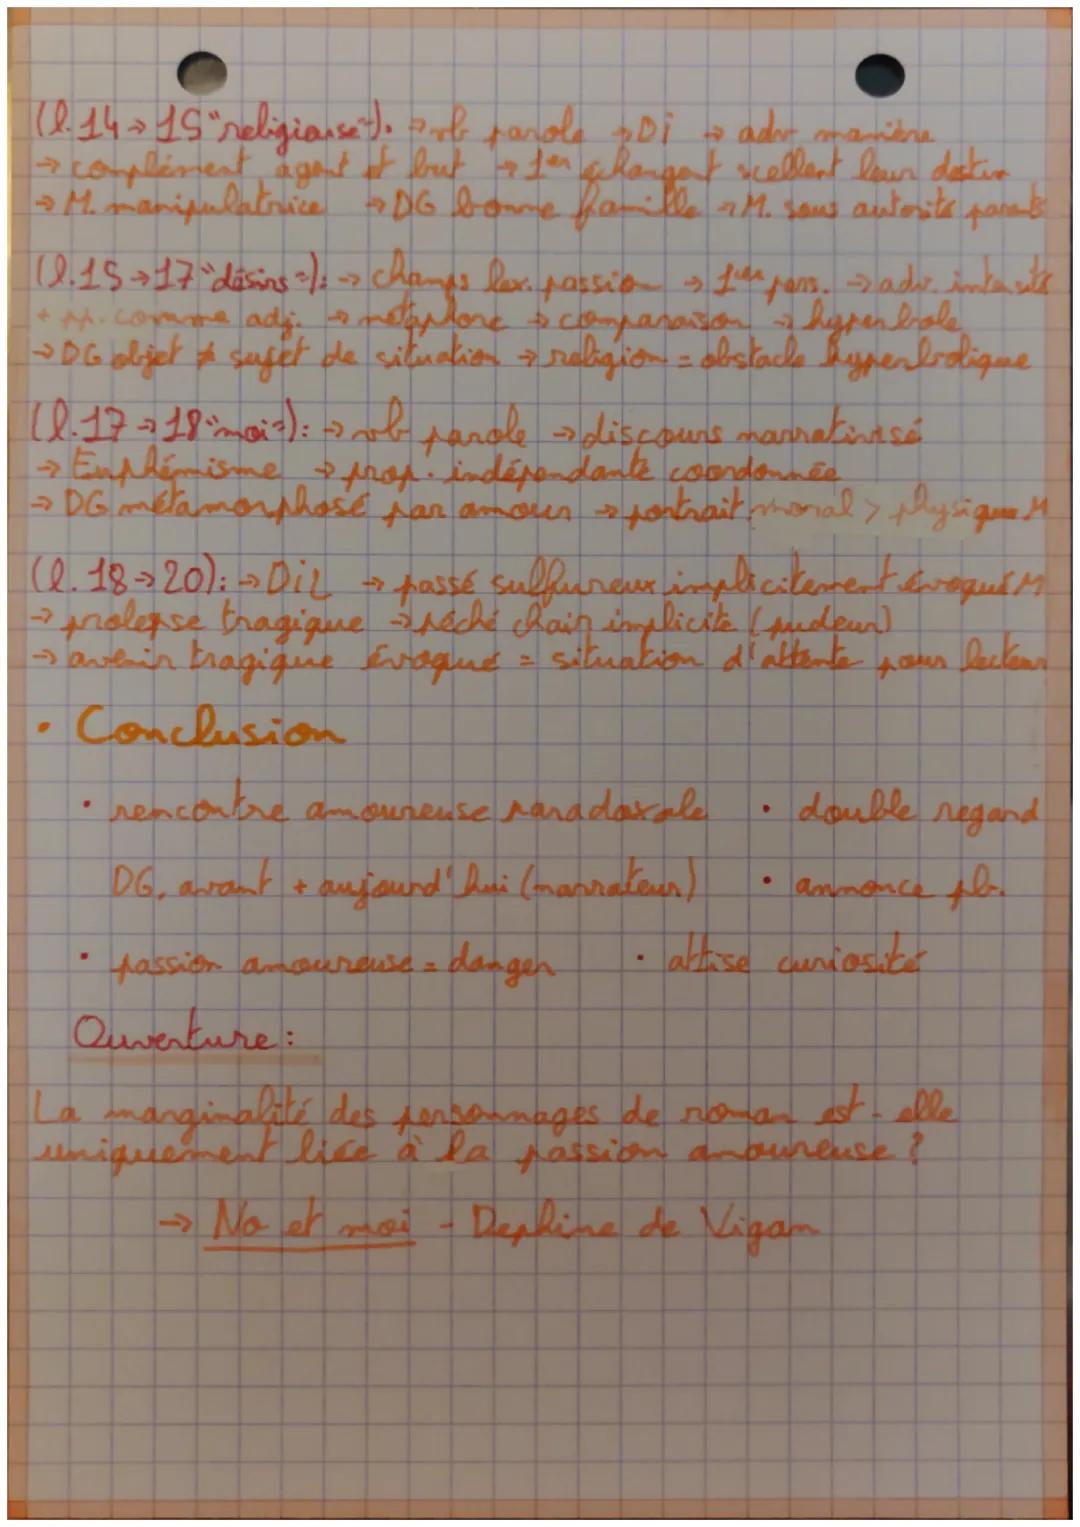 (l.14→15 "religieuse"): → vb parole → Di → adv manière
→ complément agent et but → 1er échangent scellent leur destin
→ M. manipulatrice → DG bonne famille → M. sous autorité parents
(l.15→17 "désirs"): → champs lex. passion → 1ère pers. → adv. intensité
+ pp. comme adj. → métaphore → comparaison → hyperbole
→ DG objet ≠ sujet de situation → religion = obstacle hyperbolique
(l.17→18 "moi"): → vb parole → discours narrativisé
→ Euphémisme → prop. indépendante coordonnée
→ DG métamorphosé par amour → portrait moral > physique M
(l.18→20): → DiL → passé sulfureux implicitement évoqué M
→ prolepse tragique → péché chair implicite (pudeur)
→ avenir tragique évoqué = situation d'attente pour lecteur
• Conclusion
• rencontre amoureuse paradoxale • double regard
DG, avant + aujourd'hui (narrateur) • annonce pb.
• passion amoureuse = danger • attise curiosité
Ouverture :
La marginalité des personnages de roman est-elle
uniquement liée à la passion amoureuse ?
→ No et moi - Dephine de Vigan